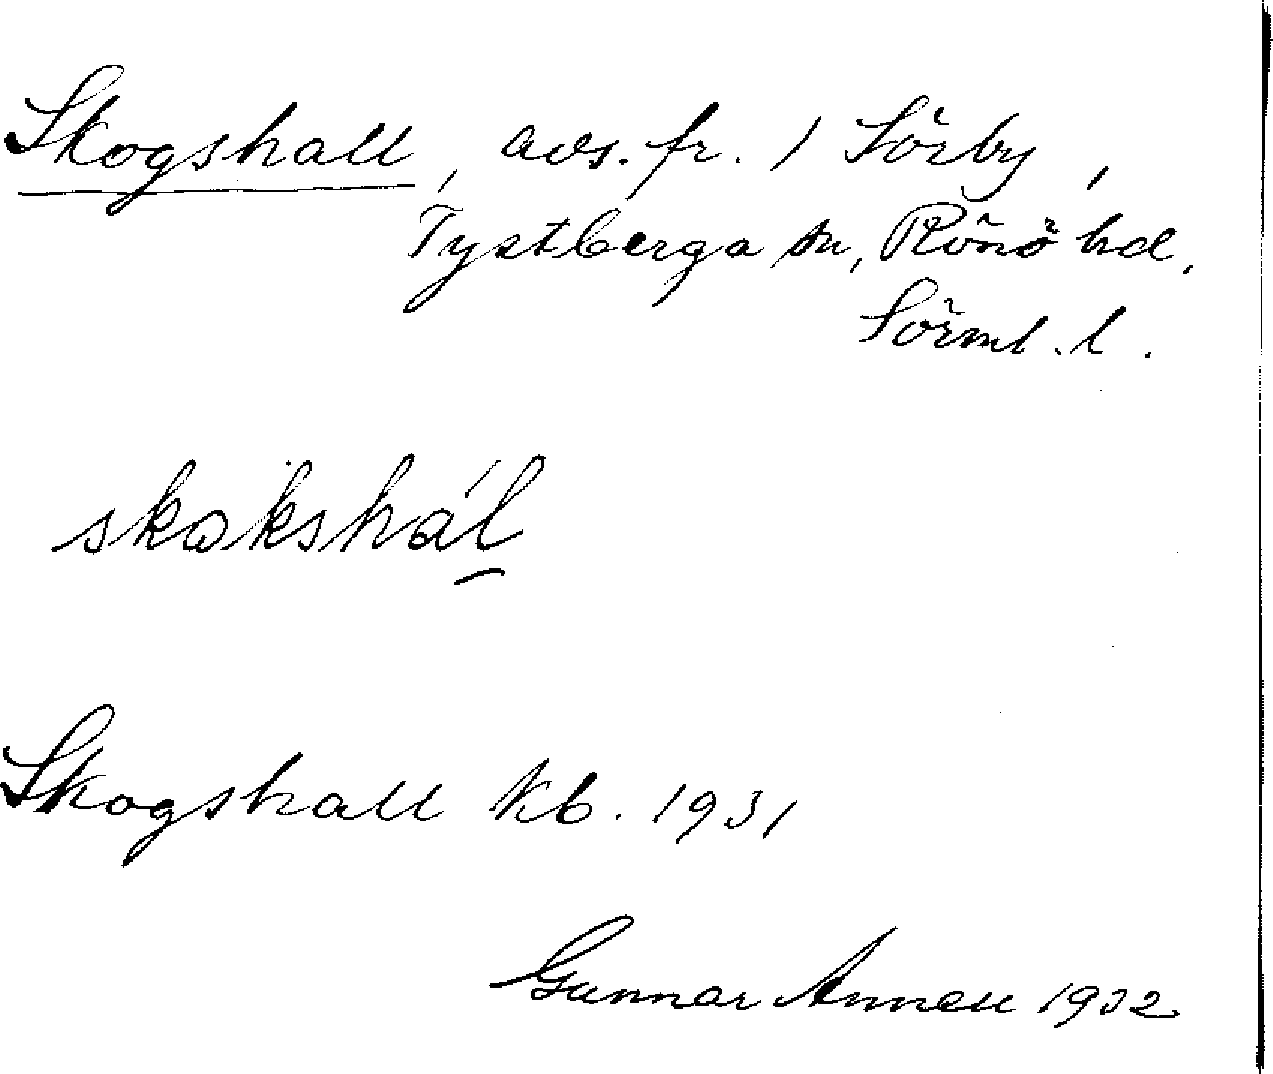 Skogshall, avs. fr. 1 Sörby,
Tystberga sn, Rönö hd,
Sörml. l.
skakshál
Skogshall kb. 1931
Gunnar Annell 1932